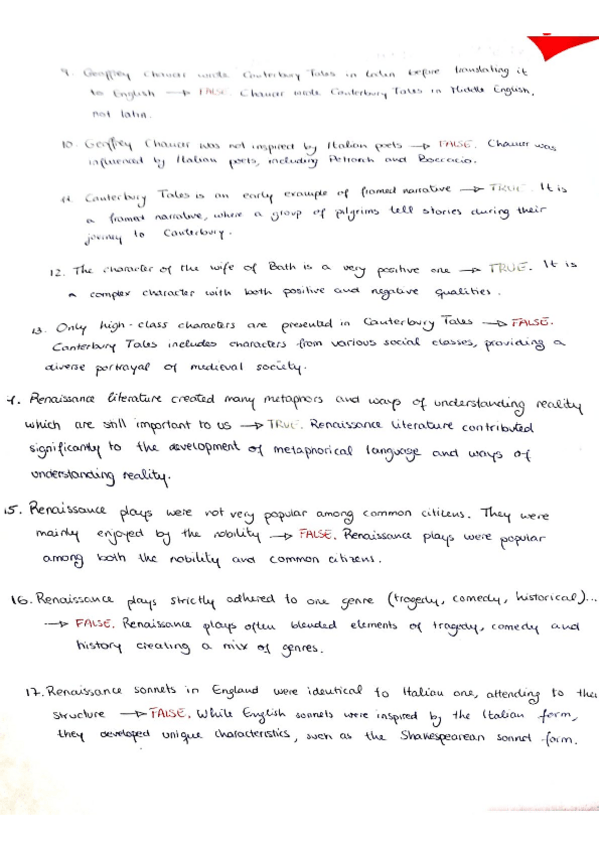 9. Geoffrey Chaucer wrote Canterbury Tales in Latin before translating it
to English → FALSE. Chaucer wrote Canterbury Tales in Middle English,
not latin.
10. Geoffrey Chaucer was not inspired by Italian poets → FALSE. Chaucer was
influenced by Italian poets, including Petrarch and Boccacio.
11. Canterbury Tales is an early example of framed narrative → TRUE. It is
a framed narrative, where a group of pilgrims tell stories during their
journey to Canterbury.
12. The character of the wife of Bath is a very positive one → TRUE. It is
a complex character with both positive and negative qualities.
13. Only high-class characters are presented in Canterbury Tales → FALSE.
Canterbury Tales includes characters from various social classes, providing a
diverse portrayal of medieval society.
4. Renaissance literature created many metaphors and ways of understanding reality
which are still important to us → TRUE. Renaissance literature contributed
significantly to the development of metaphorical language and ways of
understanding reality.
15. Renaissance plays were not very popular among common citizens. They were
mainly enjoyed by the nobility → FALSE. Renaissance plays were popular
among both the nobility and common citizens.
16. Renaissance plays strictly adhered to one genre (tragedy, comedy, historical)...
→ FALSE. Renaissance plays often blended elements of tragedy, comedy and
history creating a mix of genres.
17. Renaissance sonnets in England were identical to Italian one, attending to their
structure → FALSE. While English sonnets were inspired by the Italian form,
they developed unique characteristics, such as the Shakespearean sonnet form.